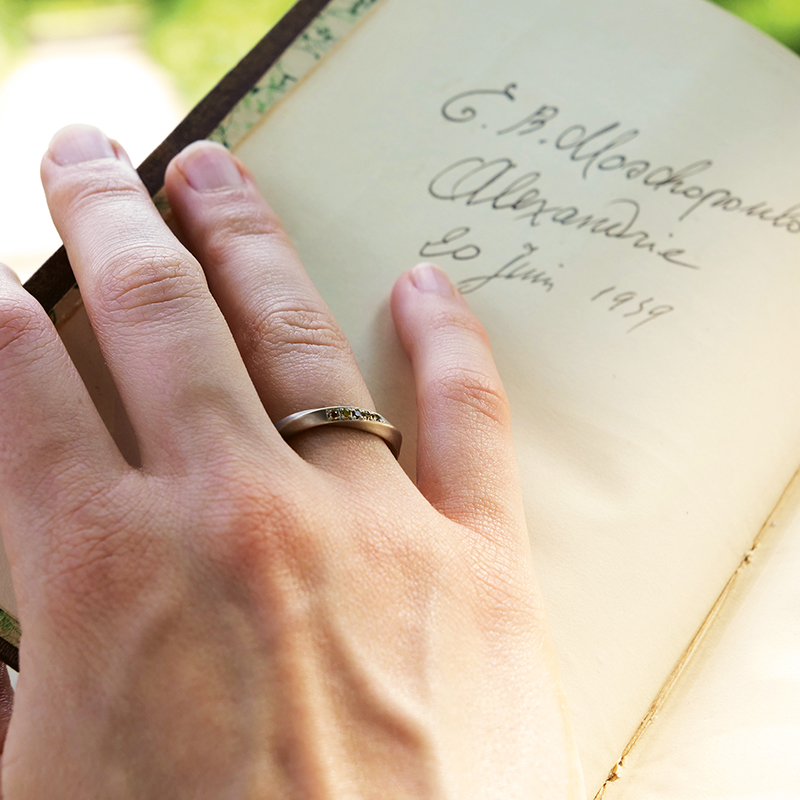 E. B. Moschopoulo
Alexandrie
20 Juin 1939